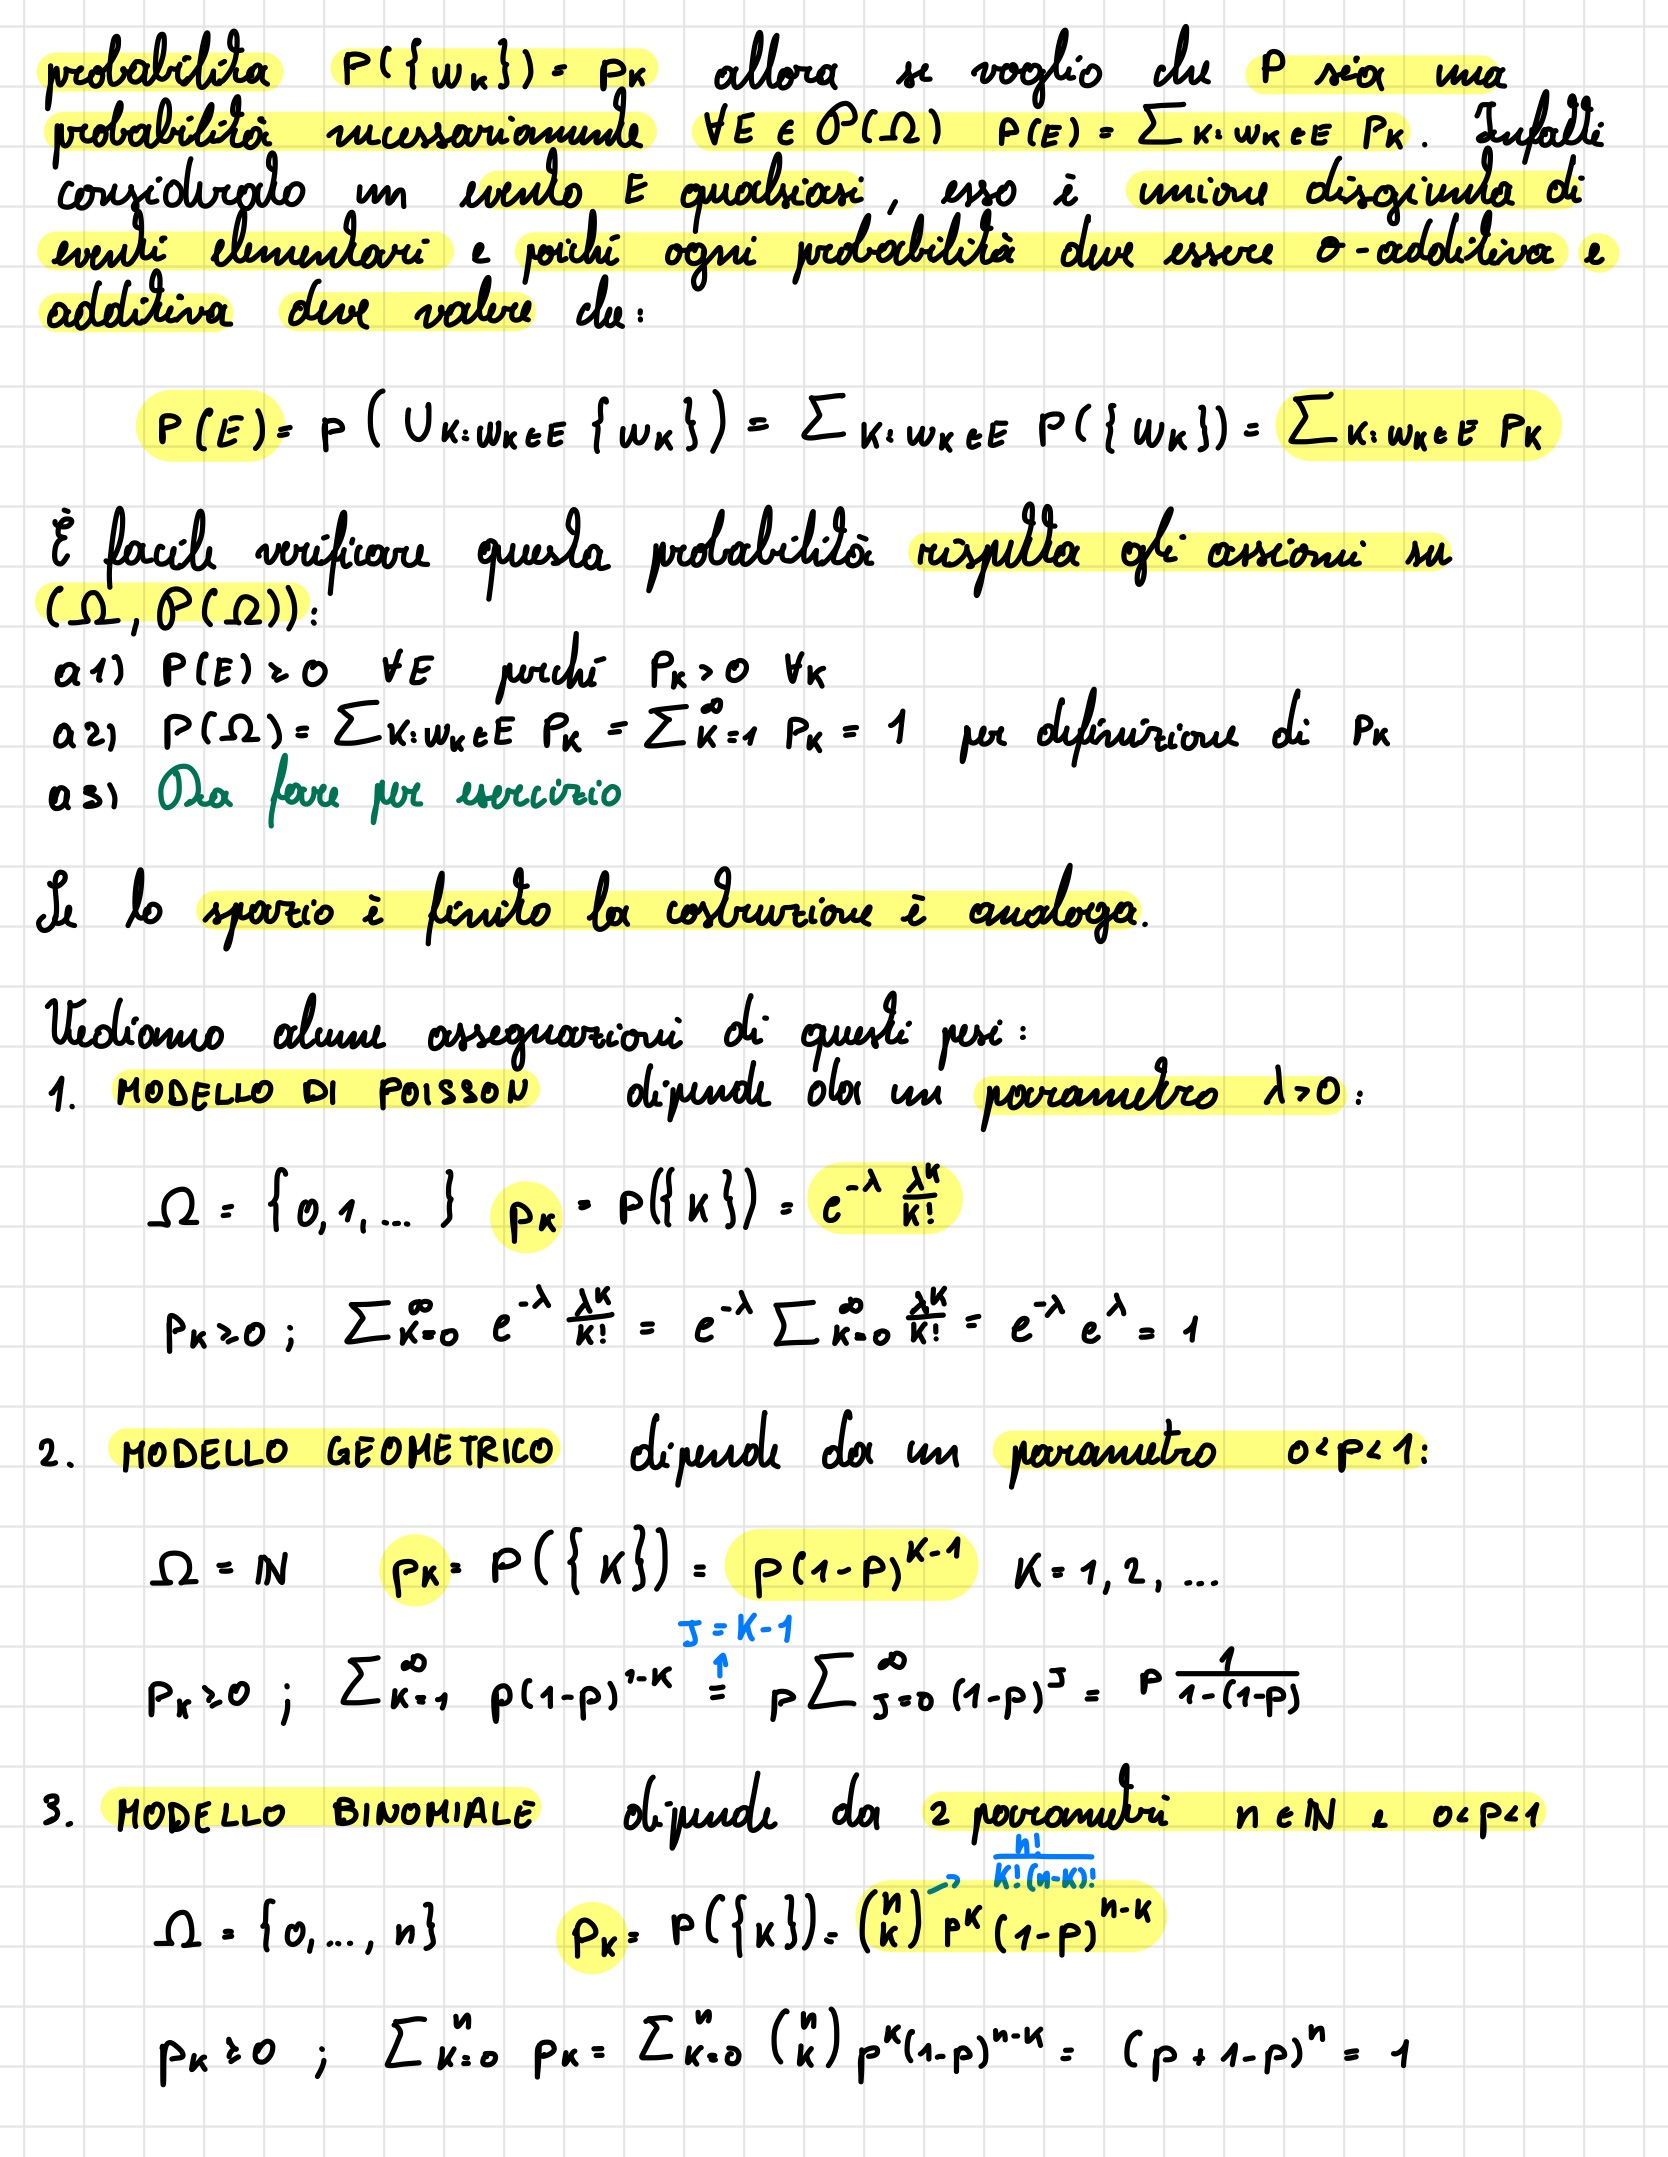 probabilità P({wₖ}) = pₖ allora se voglio che P sia una
probabilità necessariamente ∀E ∈ 𝒫(Ω) P(E) = ∑ₖ:wₖ∈E Pₖ. Infatti
considerato un evento E qualsiasi, esso è unione disgiunta di
eventi elementari e poiché ogni probabilità deve essere σ-additiva e
additiva deve valere che:
P(E) = P(⋃ₖ:wₖ∈E {wₖ}) = ∑ₖ:wₖ∈E P({wₖ}) = ∑ₖ:wₖ∈E Pₖ
È facile verificare questa probabilità rispetta gli assiomi su
(Ω, 𝒫(Ω)):
a1) P(E) ≥ 0 ∀E perché Pₖ > 0 ∀k
a2) P(Ω) = ∑ₖ:wₖ∈E Pₖ = ∑_{k=1}^∞ Pₖ = 1 per definizione di Pₖ
a3) Da fare per esercizio
Se lo spazio è finito la costruzione è analoga.
Vediamo alcune assegnazioni di questi pesi:
1. MODELLO DI POISSON dipende da un parametro λ>0:
Ω = {0,1,... } pₖ = P({k}) = e^{-λ} λ^k/k!
pₖ ≥ 0 ; ∑_{k=0}^∞ e^{-λ} λ^k/k! = e^{-λ} ∑_{k=0}^∞ λ^k/k! = e^{-λ} e^λ = 1
2. MODELLO GEOMETRICO dipende da un parametro 0<p<1:
Ω = ℕ pₖ = P({k}) = p(1-p)^{k-1} k = 1, 2, ...
J = K-1
pₖ ≥ 0 ; ∑_{k=1}^∞ p(1-p)^{1-k} = p ∑_{J=0}^∞ (1-p)^J = p 1/(1-(1-p))
3. MODELLO BINOMIALE dipende da 2 parametri n ∈ ℕ e 0<p<1
n!/(k!(n-k)!)
Ω = {0,..., n} pₖ = P({k}) = (n k) p^k (1-p)^{n-k}
pₖ ≥ 0 ; ∑_{k=0}^n pₖ = ∑_{k=0}^n (n k) p^k (1-p)^{n-k} = (p + 1-p)^n = 1